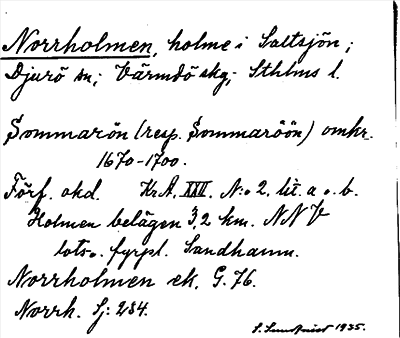 Norrholmen, holme i Saltsjön;
Djurö sn; Värmdö skg; Sthlms l.
Sommarön (resp. Sommaröön) omkr.
1670-1700.
Förf. okd. Kr.A. XXII. N:o 2. lit. a o. b.
Holmen belägen 3,2 km. NNV
lots o. fyrpl. Sandhamn.
Norrholmen ek. G. 76.
Norrh. Sj: 234.
1935.